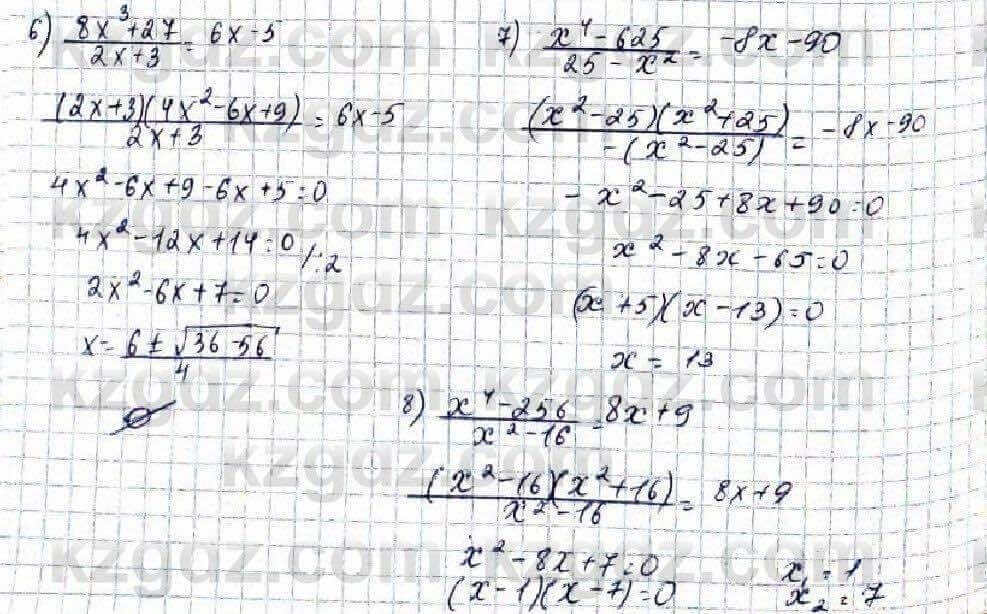 6) (8x³+27)/(2x+3) = 6x-5
((2x+3)(4x²-6x+9))/(2x+3) = 6x-5
4x²-6x+9-6x+5=0
4x²-12x+14=0 /:2
2x²-6x+7=0
x = (6±√(36-56))/4
∅
7) (x⁴-625)/(25-x²) = -8x-90
((x²-25)(x²+25))/(-(x²-25)) = -8x-90
-x²-25+8x+90=0
x²-8x-65=0
(x+5)(x-13)=0
x = 13
8) (x⁴-256)/(x²-16) = 8x+9
((x²-16)(x²+16))/(x²-16) = 8x+9
x²-8x+7=0
(x-1)(x-7)=0
x₁=1
x₂=7
kzgdz.com